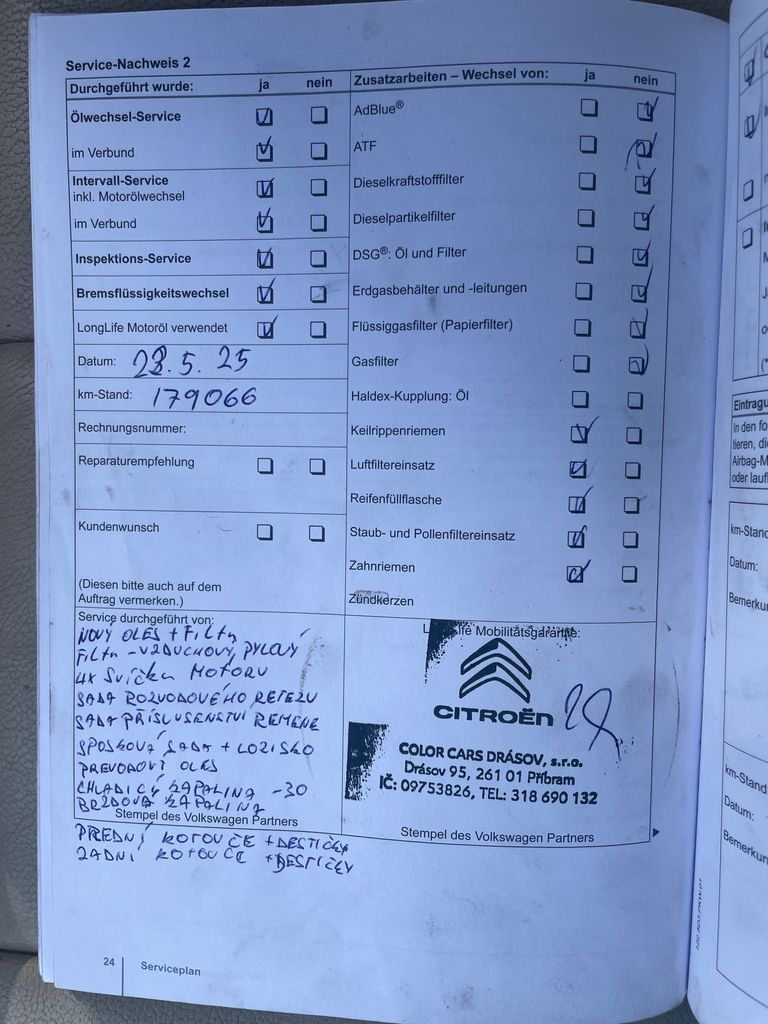 Service-Nachweis 2
Durchgeführt wurde: ja nein
Ölwechsel-Service
im Verbund
Intervall-Service
inkl. Motorölwechsel
im Verbund
Inspektions-Service
Bremsflüssigkeitswechsel
LongLife Motoröl verwendet
Datum: 28.5.25
km-Stand: 179066
Rechnungsnummer:
Reparaturempfehlung
Kundenwunsch
(Diesen bitte auch auf dem
Auftrag vermerken.)
Zusatzarbeiten – Wechsel von: ja nein
AdBlue®
ATF
Dieselkraftstofffilter
Dieselpartikelfilter
DSG®: Öl und Filter
Erdgasbehälter und -leitungen
Flüssiggasfilter (Papierfilter)
Gasfilter
Haldex-Kupplung: Öl
Keilrippenriemen
Luftfiltereinsatz
Reifenfüllflasche
Staub- und Pollenfiltereinsatz
Zahnriemen
Zündkerzen
Service durchgeführt von:
NOVÝ OLEJ + FILTR
FILTR - VZDUCHOVÝ, PYLOVÝ
4X SVÍČKA MOTORU
SADA ROZVODOVÉHO ŘETEZU
SADA PŘÍSLUŠENSTVÍ ŘEMENE
SPOJKOVÁ SADA + LOŽISKO
PŘEVODOVÝ OLEJ
CHLADÍCÍ KAPALINA -30
BRZDOVÁ KAPALINA
Stempel des Volkswagen Partners
PŘEDNÍ KOTOUČE + DESTIČKY
ZADNÍ KOTOUČE + DESTIČKY
Mobilitätsgarantie:
CITROËN
COLOR CARS DRÁSOV, s.r.o.
Drásov 95, 261 01 Příbram
IČ: 09753826, TEL: 318 690 132
Stempel des Volkswagen Partners
24 Serviceplan
Eintragu
In den fo
tieren, di
Airbag-M
oder lauf
km-Stand
Datum:
Bemerkun
km-Stand
Datum:
Bemerkun